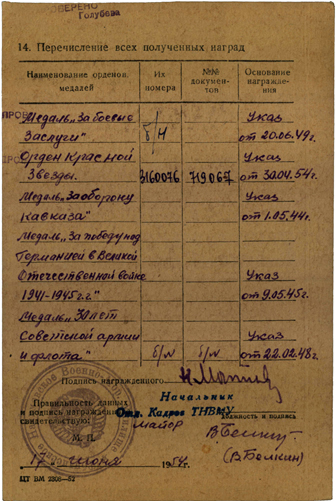 ВЕРЕНО
Голубова
14. Перечисление всех полученных наград
Наименование орденов, медалей
Их номера
№№ документов
Основание награждения
Медаль „За боевые
Указ
Заслуги"
б/н
от 20.06.49г.
Орден Красной
Указ
Звезды.
3160076
719067
от 30.04.54г.
Медаль „За оборону
Указ
Кавказа"
от 1.05.44г.
Медаль „За победу над
Германией в Великой
Отечественной войне
Указ
1941-1945г.г."
от 9.05.45г.
Медаль „30 лет
Советской армии
Указ
и флота"
б/н
б/н
от 22.02.48г.
Подпись награжденного
Правильность данных
и подпись награжденного
свидетельствую:
Начальник
Отд. Кадров ТНВМУ
майор
должность и подпись
М. П.
(В Болкин)
17 " июня 1954г.
ЦТ ВМ 2306—52